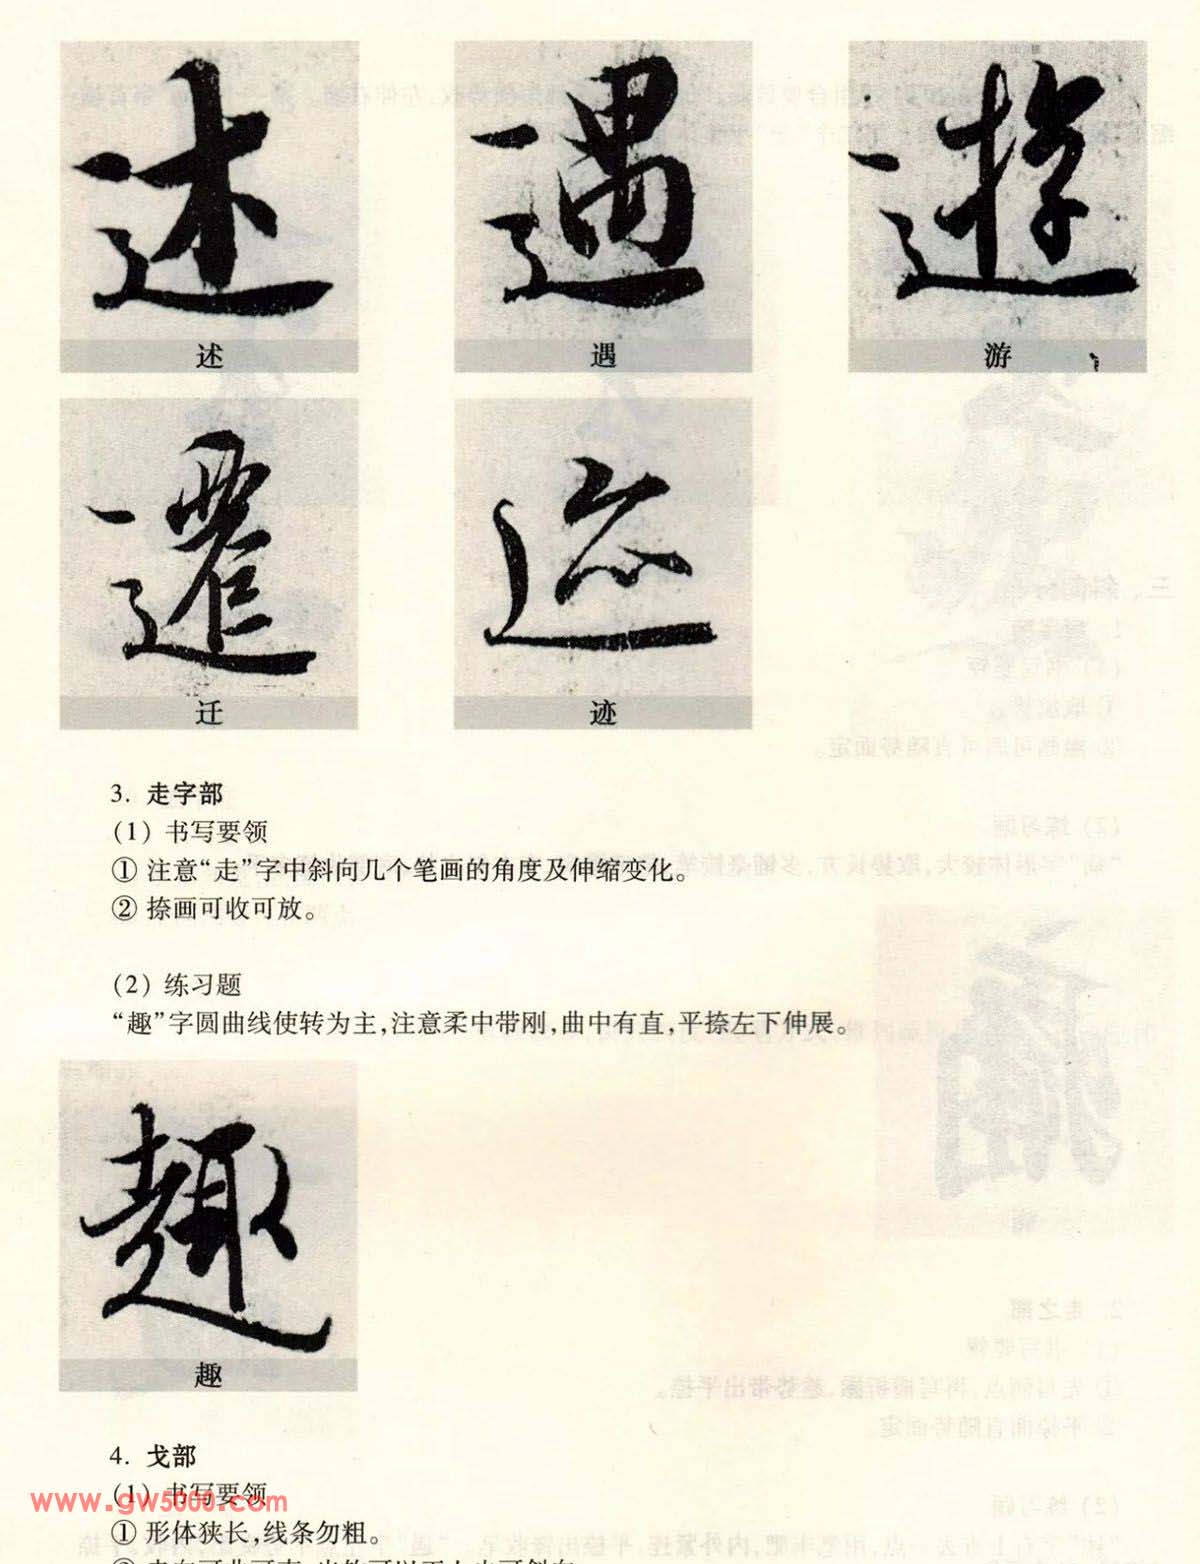 述 遇 游
述 遇 游
遷 迹
迁 迹
3. 走字部
(1) 书写要领
① 注意“走”字中斜向几个笔画的角度及伸缩变化。
② 捺画可收可放。
(2) 练习题
“趣”字圆曲线使转为主,注意柔中带刚,曲中有直,平捺左下伸展。
趣
趣
4. 戈部
(1) 书写要领
www.gw5000.com
① 形体狭长,线条勿粗。